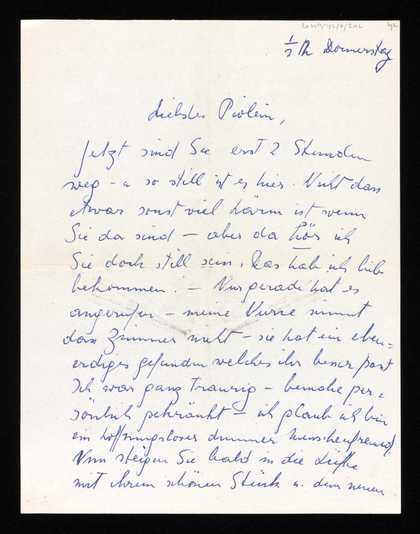 ½ 12 Donnerstag
Liebstes Violein,
Jetzt sind Sie erst 2 Stunden
weg – u so still ist es hier. Nicht dass
etwas sonst viel Lärm ist wenn
Sie da sind – aber da hör ich
Sie doch still sein. Das hab ich lieb
bekommen! – Nun gerade hat es
angerufen – meine nimmt
das Zimmer nicht – sie hat ein eben-
erdiges gefunden welches ihr besser passt
Ich war ganz traurig – beinahe per-
sönlich gekränkt – ich glaub ich bin
ein hoffnungsloser dummer Menschenfreund.
Nun steigen Sie bald in die Lüfte
mit ihrem schönen Stück u. dem neuen